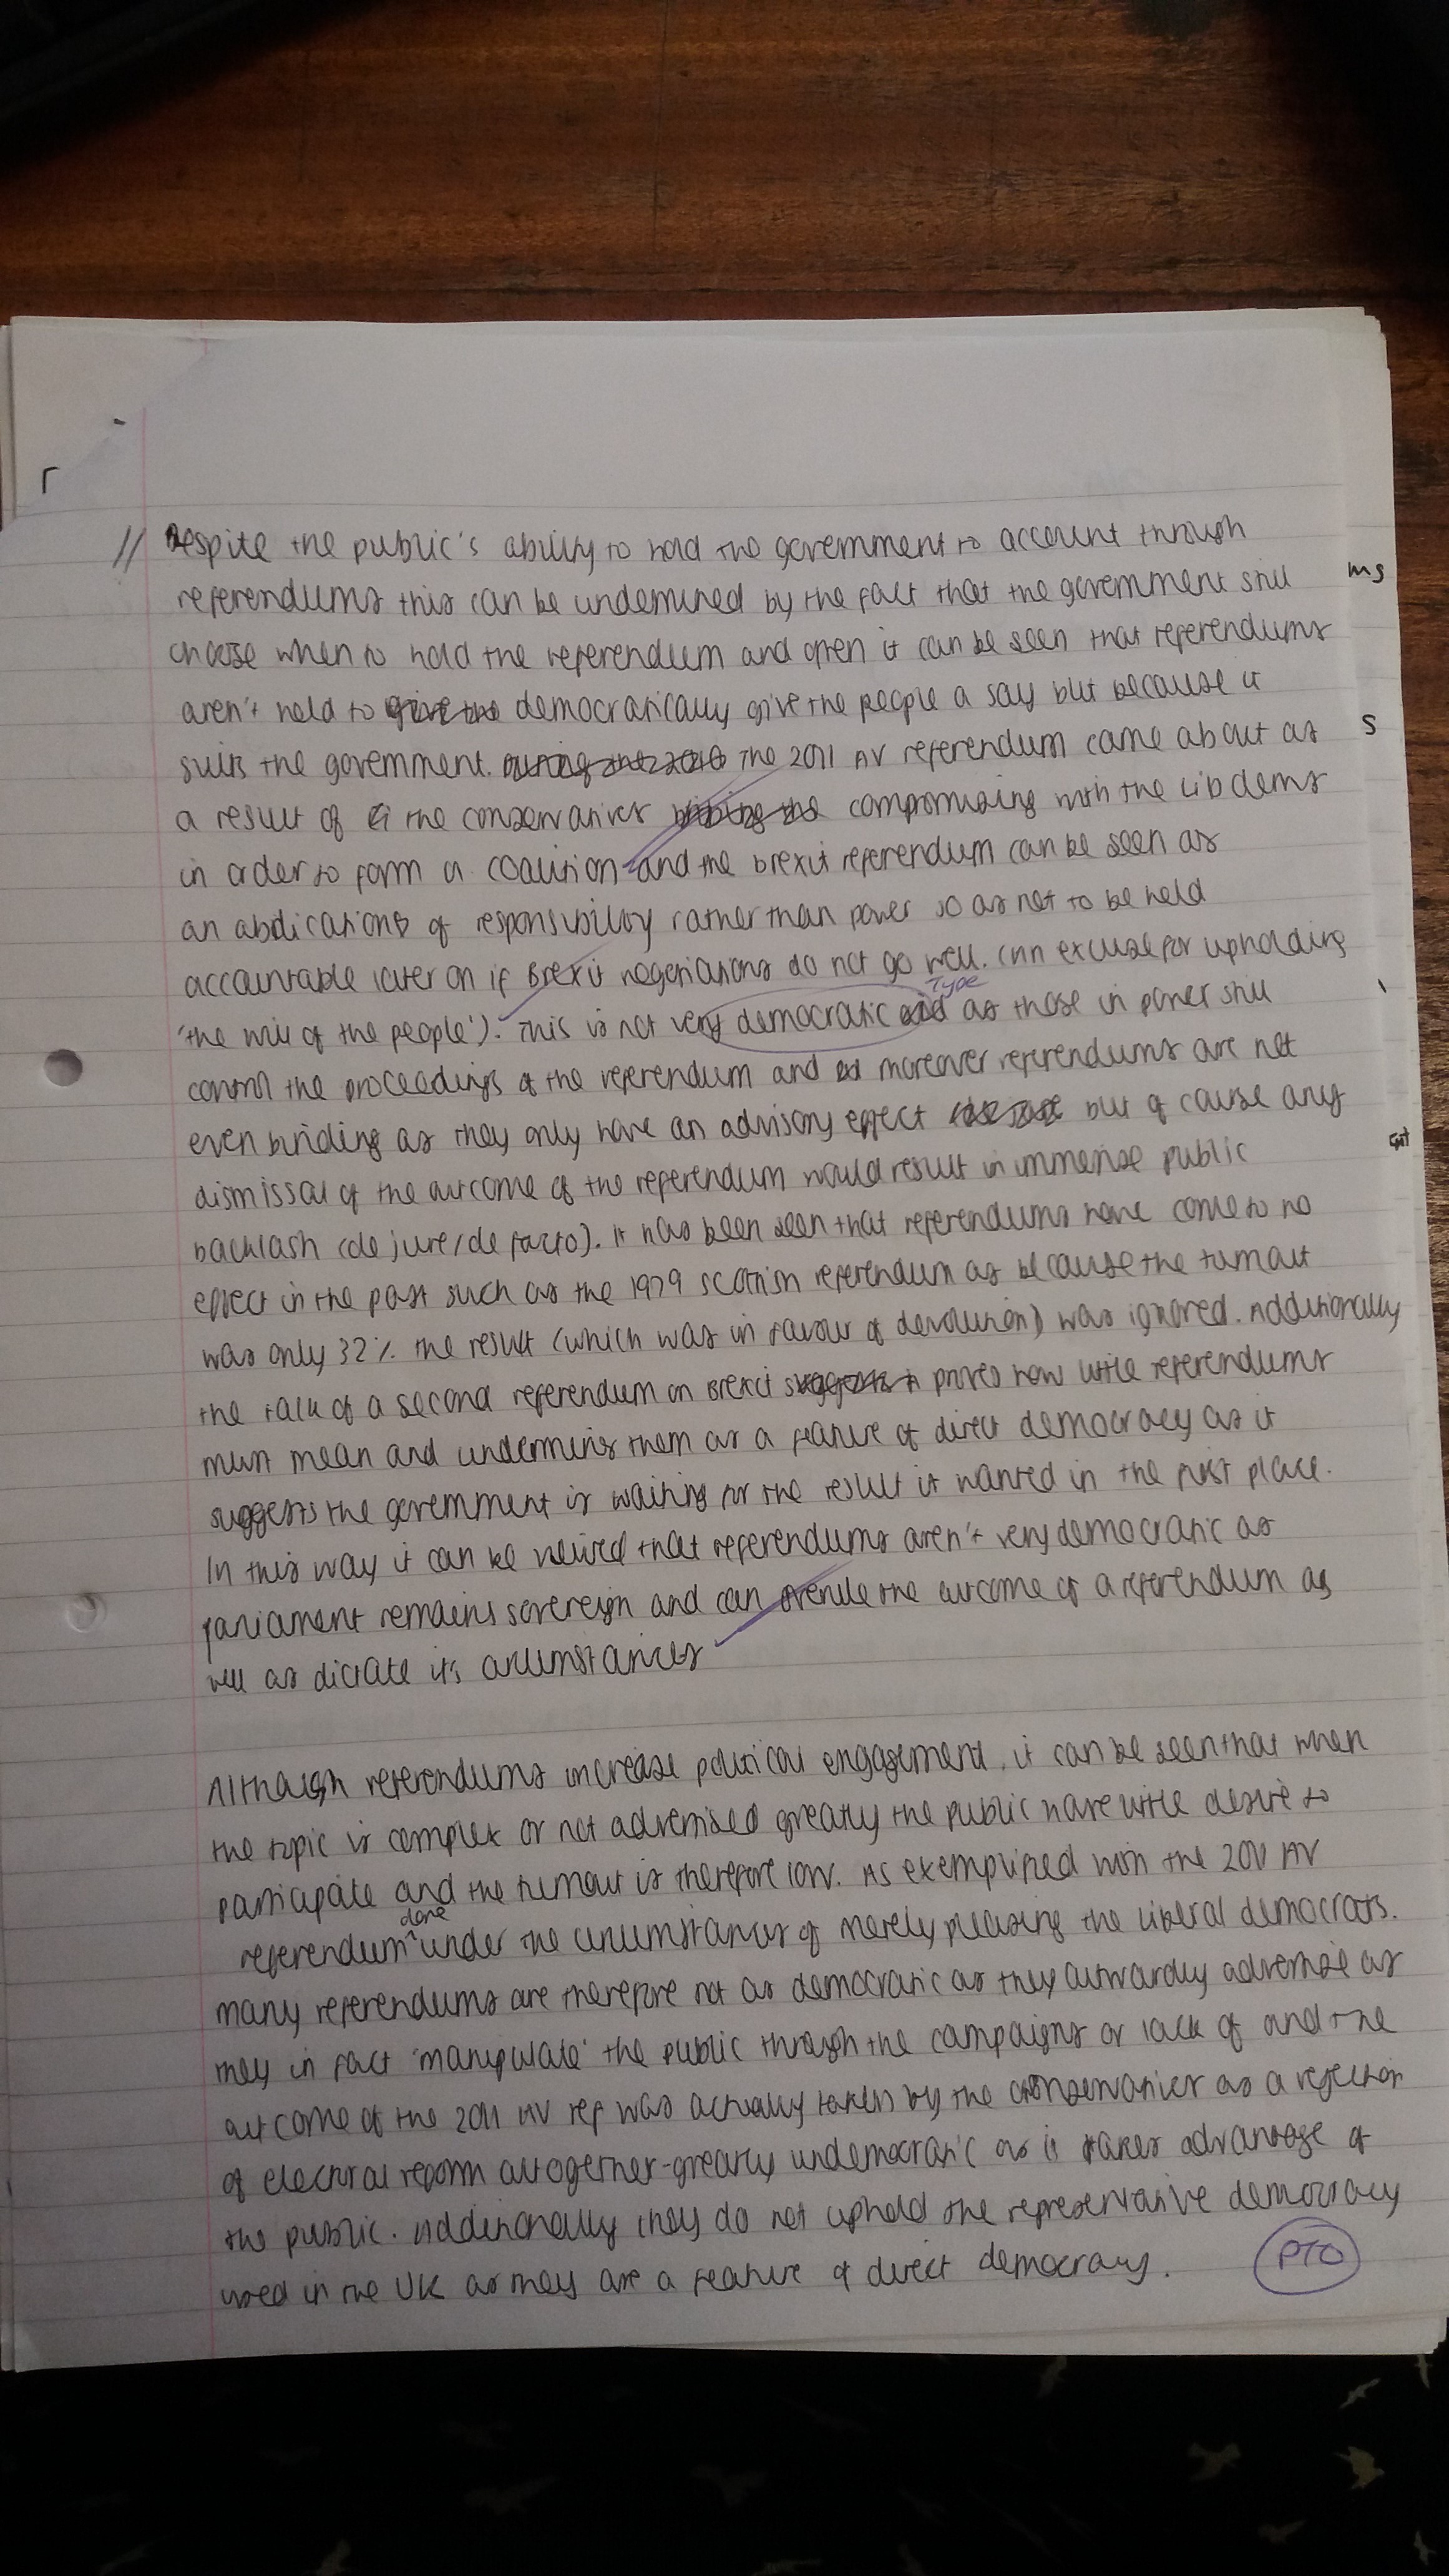 // Despite the public's ability to hold the government to account through
referendums this can be undemined by the fact that the government still
choose when to hold the referendum and often it can be seen that referendums
aren't held to give the democratically give the people a say but because it
suits the government. The 2011 AV referendum came about as
a result of the conservatives compromising with the Lib dems
in order to form a coalition and the brexit referendum can be seen as
an abdication of responsibility rather than power so as not to be held
accountable later on if Brexit negotiations do not go well. (An excuse for upholding
'the will of the people'). This is not very democratic as those in power still
Type
control the proceedings of the referendum and moreover referendums are not
even binding as they only have an advisory effect but of cause any
dismissal of the outcome of the referendum would result in immense public
backlash (de jure/de facto). It has been seen that referendums have come to no
effect in the past such as the 1979 Scottish referendum as because the turnout
was only 32% the result (which was in favour of devolution) was ignored. Additionally
the talk of a second referendum on Brexit proves how little referendums
must mean and undermines them as a feature of direct democracy as it
suggests the government is waiting for the result it wanted in the first place.
In this way it can be viewed that referendums aren't very democratic as
parliament remains sovereign and can overule the outcome of a referendum as
well as dictate it's circumstances
Although referendums increase political engagement, it can be seen that when
the topic is complex or not advertised greatly the public have little desire to
participate and the turnout is therefore low. As exemplified with the 2011 AV
referendum done under the circumstances of merely pleasing the Liberal democrats.
many referendums are therefore not as democratic as they outwardly advertise as
they in fact 'manipulate' the public through the campaigns or lack of and the
outcome of the 2011 AV ref was actually taken by the conservatives as a rejection
of electoral reform altogether - greatly undemocratic as it takes advantage of
the public. Additionally they do not uphold the representative democracy
used in the UK as they are a feature of direct democracy.
PTO
ms
s